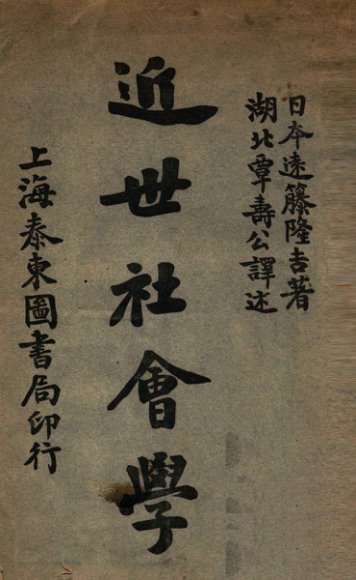 日本遠籐隆吉著
湖北覃壽公譯述
近世社會學
上海泰東圖書局印行